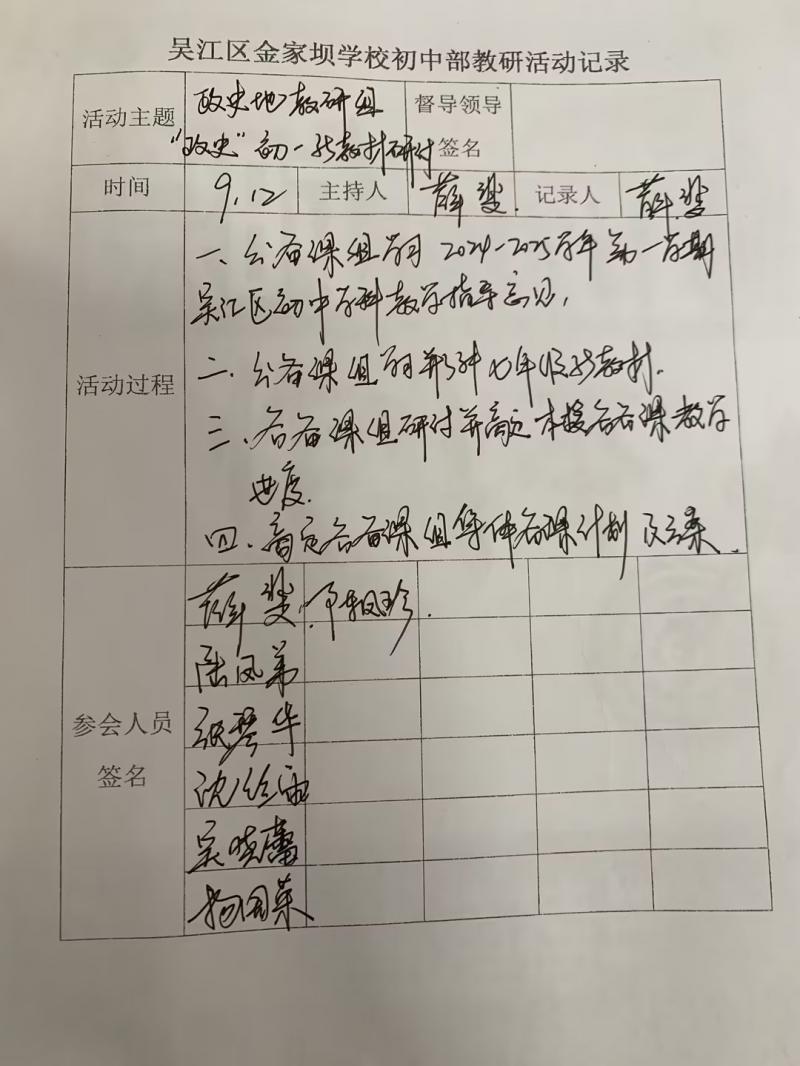 吴江区金家坝学校初中部教研活动记录
活动主题 政史地教研组 督导领导
"政史"初一新教材研讨 签名
时间 9.12 主持人 薛斐. 记录人 薛斐
一、公备课组学习2024-2025学年第一学期
吴江区初中学科教学指导意见,
活动过程
二、公备课组学习新 七年级新教材.
三、各备课组研讨并商定本校各备课教学
进度.
四、商定各备课组集体备课计划
薛斐
陆凤弟
参会人员 张琴华
签名 沈
吴晓蕾
杨国英